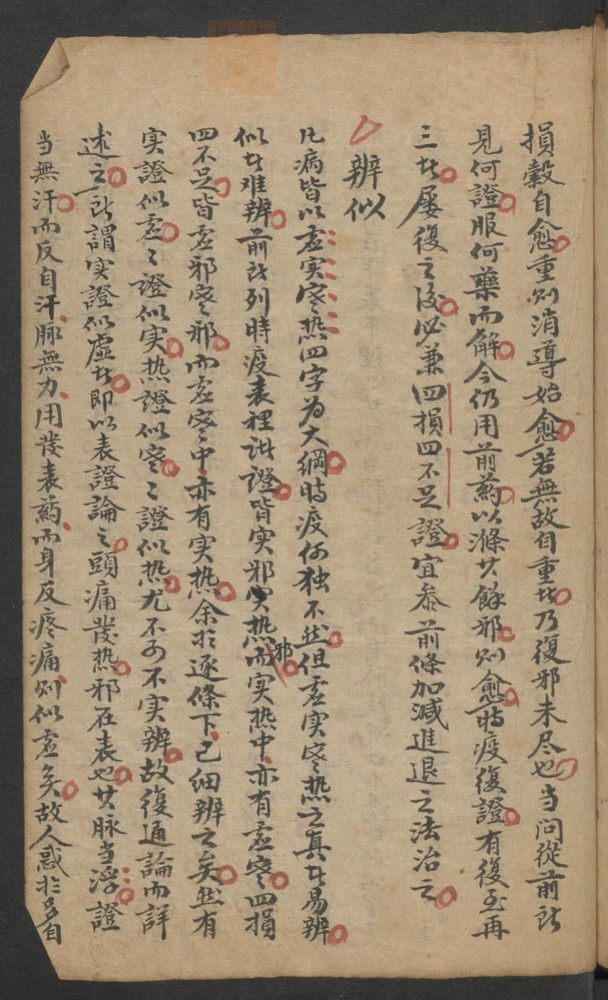 損穀自愈重則消導始愈若無故自重者乃復邪未尽也当问從前所
見何證服何藥而解今仍用前葯以滌其餘邪則愈時疫復證有復至再
三者屡復之後必兼四損四不足證宜叅前條加減進退之法治之
辨似
凡病皆以虗实寒热四字为大綱時疫何独不然但虗实寒热之真者易辨
似者难辨前所列時疫表裡诸證皆实邪实热邪而实热中亦有虗寒四損
四不足皆虗邪寒邪而虗寒中亦有实热余於逐條下已细辨之矣然有
实證似虗〻證似实热證似寒〻證似热尤不可不实辨故復通論而詳
述之所謂实證似虛者即以表證論之頭痛發热邪在表也其脉当浮證
当無汗而反自汗脉無力用發表葯而身反疼痛則似虗矣故人惑於多自